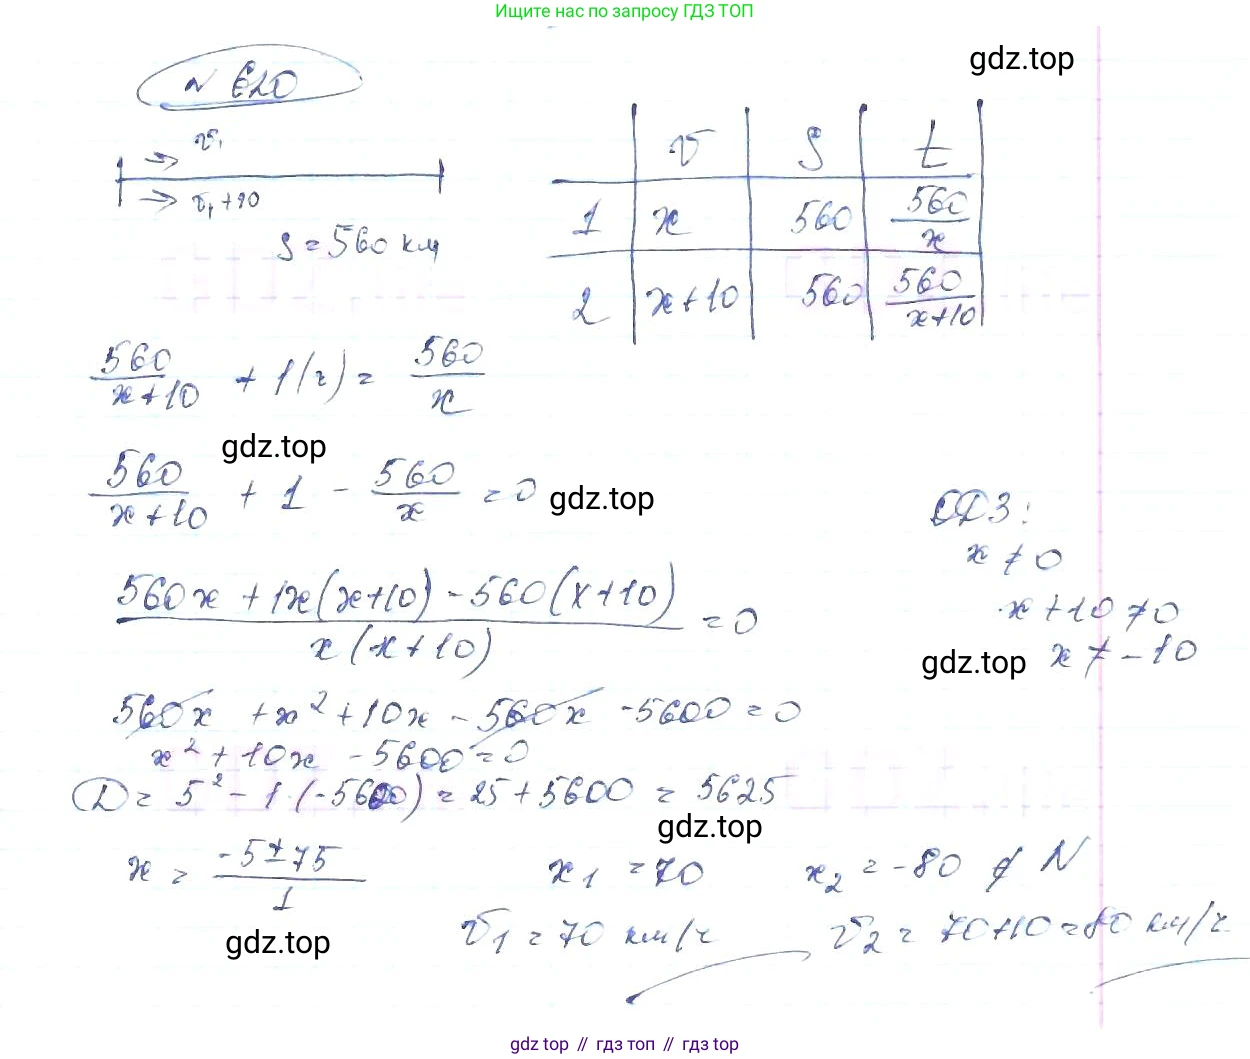 Ищите нас по запросу ГДЗ ТОП
gdz.top
№ 620
v₁
v₁+10
S = 560 км
v S t
1 x 560 560/x
2 x+10 560 560/(x+10)
560/(x+10) + 1(ч) = 560/x
gdz.top
560/(x+10) + 1 - 560/x = 0
gdz.top
ОДЗ:
x ≠ 0
x+10 ≠ 0
x ≠ -10
gdz.top
(560x + 1x(x+10) - 560(x+10))/(x(x+10)) = 0
560x + x² + 10x - 560x - 5600 = 0
x² + 10x - 5600 = 0
D = 5² - 1·(-5600) = 25 + 5600 = 5625
gdz.top
x = (-5 ± 75)/1
x₁ = 70
x₂ = -80 ∉ N
gdz.top
v₁ = 70 км/ч
v₂ = 70+10 = 80 км/ч
gdz.top // гдз топ // gdz top